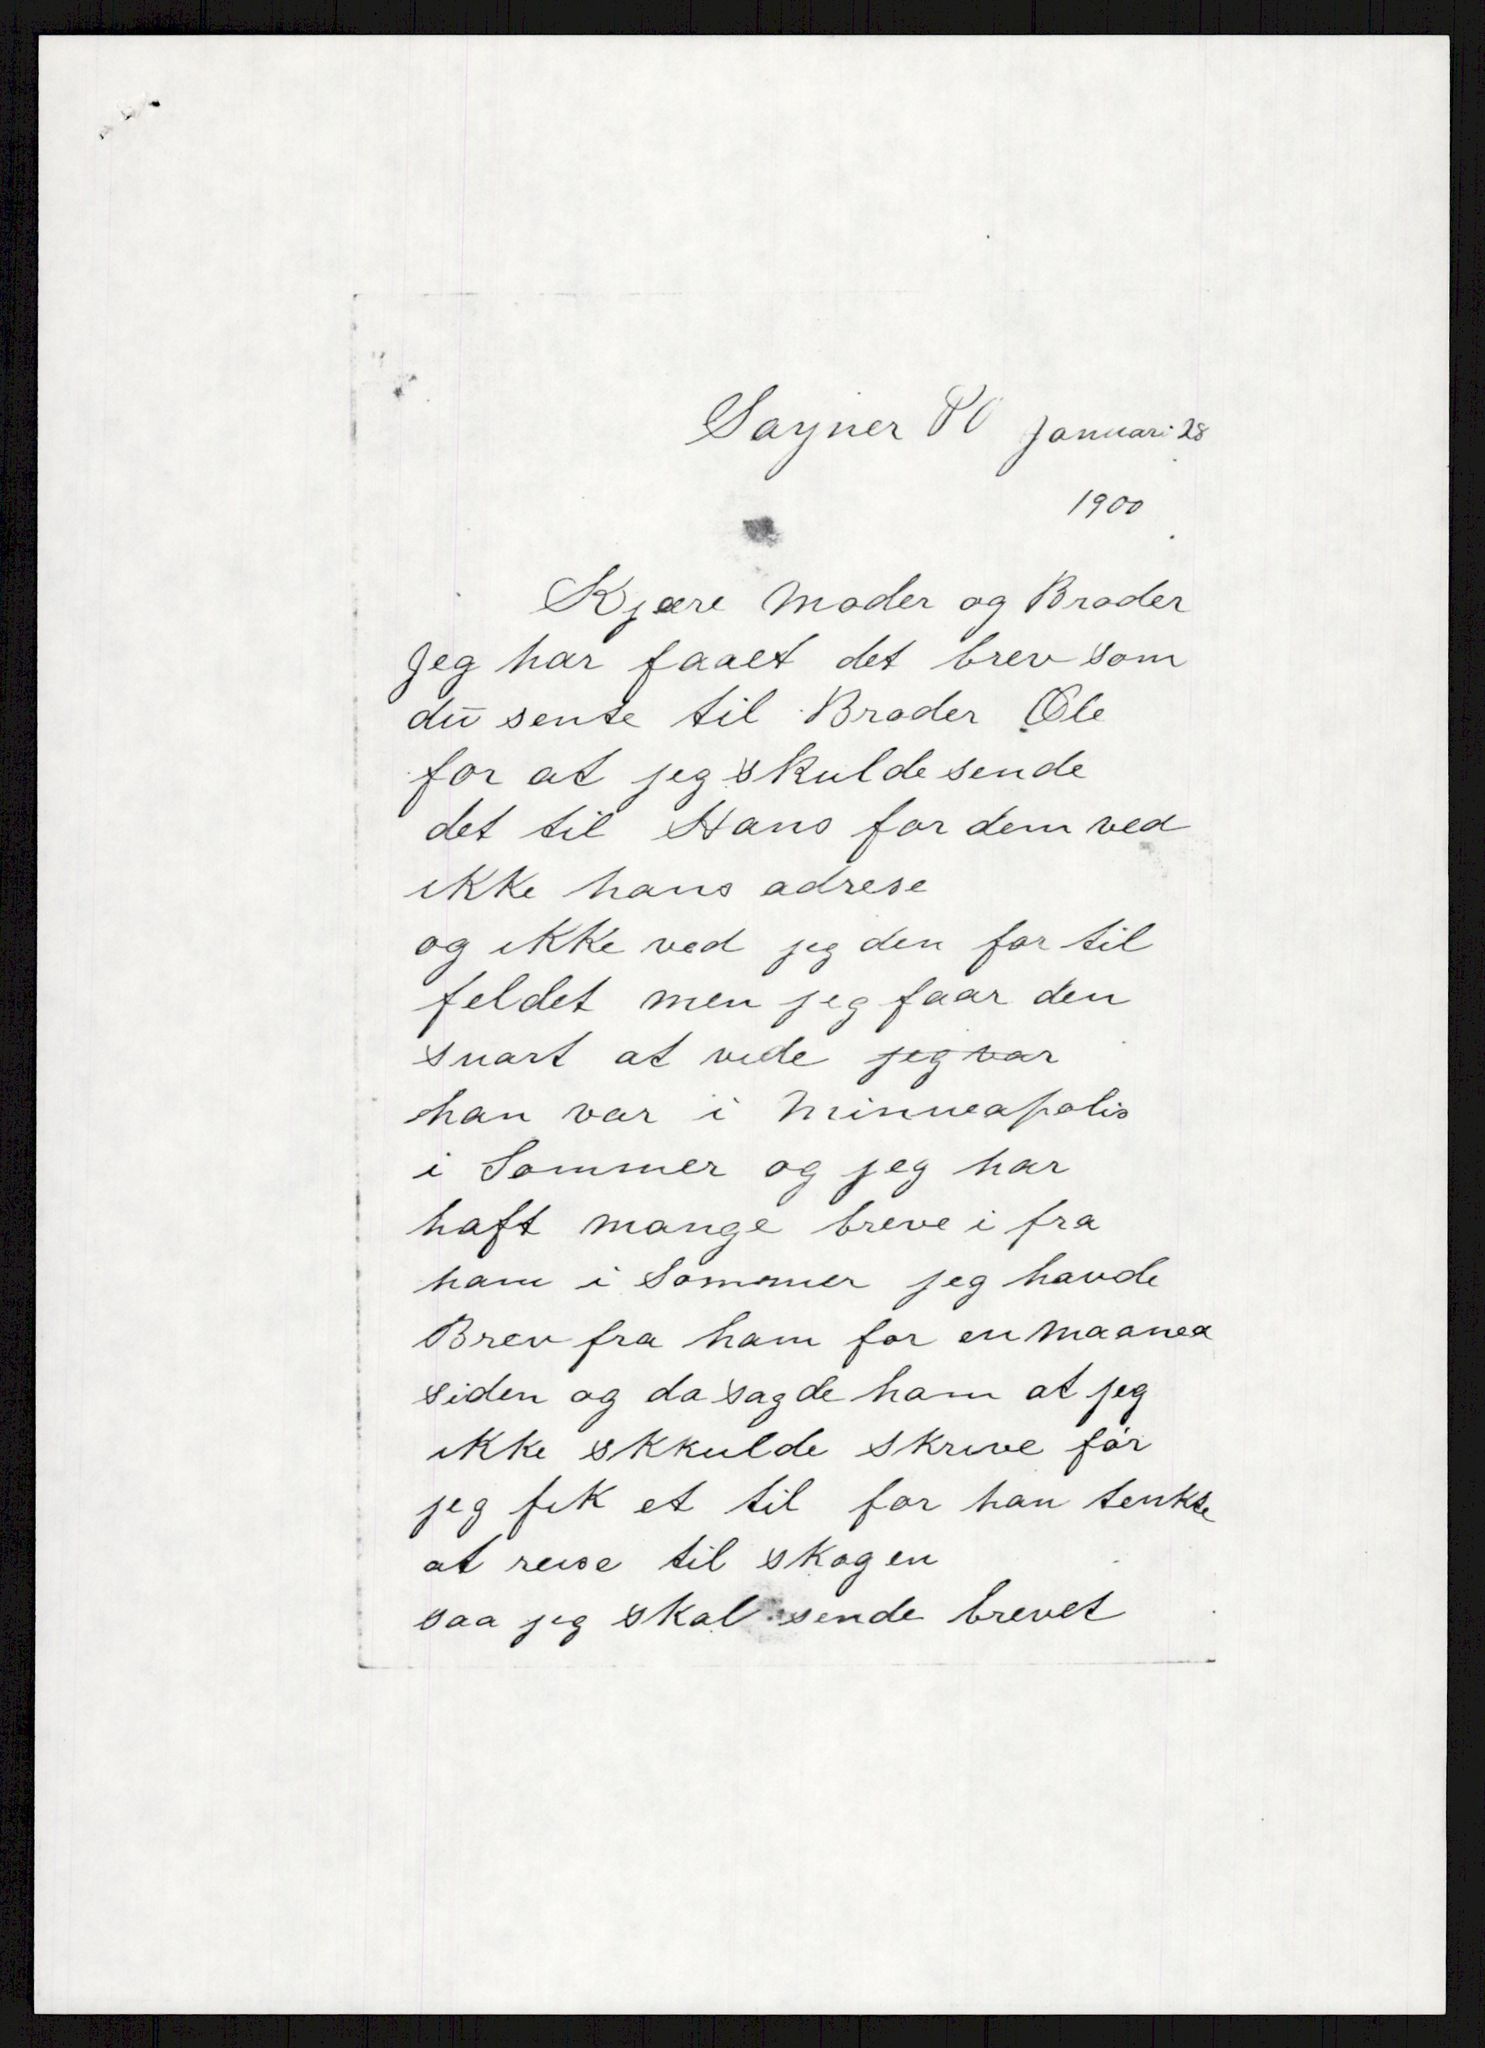 Sayner PO Januari 28
1900
Kjære Moder og Broder
Jeg har faaet det brev som
du sente til Broder Ole
for at jeg skulde sende
det til Hans for dem ved
ikke hans adrese
og ikke ved jeg den for til
feldet men jeg faar den
snart at vide jeg var
han var i Minneapolis
i Sommer og jeg har
haft mange breve i fra
ham i Sommer jeg havde
Brev fra ham for en maaned
siden og da sagde ham at jeg
ikke skkulde skrive før
jeg fik et til for han tenkte
at reise til skogen
saa jeg skal sende brevet